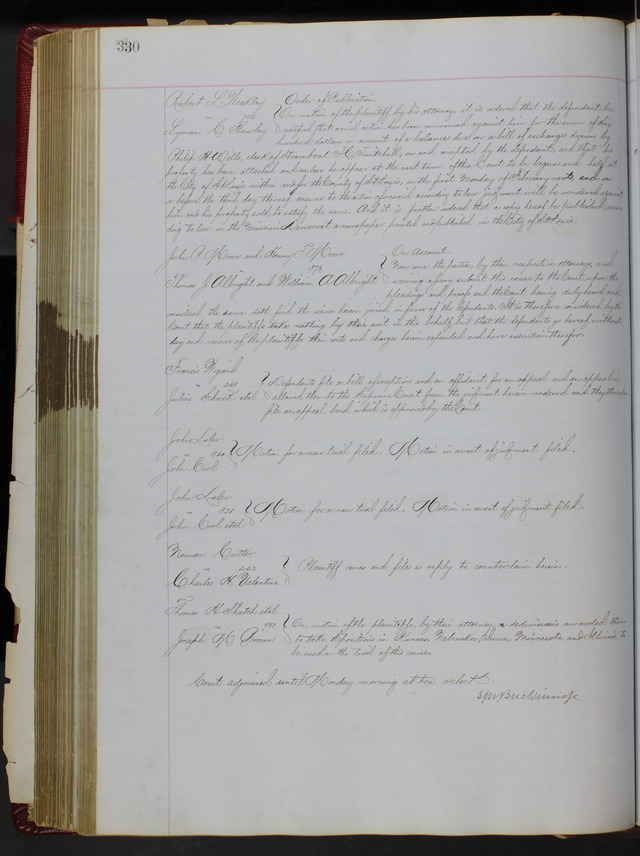 330
Robert L. Weakley Order of Publication.
vs On motion of the plaintiff by his attorney, it is ordered that the defendant be
Lyman C. notified that a civil action has been commenced against him for the sum of
hundred dollars on account of a balance due on a bill of exchange drawn by
Philip H. Wells, clerk of Steamboat H. Twitchell, on and accepted by the defendant, and that his
property has been attached and unless he appear at the next term of this Court to be begun and held at
the City of St Louis within and for the County of St Louis, on the first Monday of February next, and on
or before the third day thereof answer to the action aforesaid according to law judgment will be rendered against
him and his property sold to satisfy the same. And it is further ordered that a copy hereof be published, accor-
ding to law in the Missouri Democrat a newspaper printed and published in the City of St Louis.
John A. and Henry On Account.
vs Now come the parties by their respective attorneys, and
Thomas J. Albright and William A Albright waiving a jury submit this cause to the Court upon the
pleadings and proofs and the Court having duly heard and
considered the same doth find the issue herein joined in favor of the defendants. It is therefore considered by the
Court that the plaintiffs take nothing by their suit in this behalf, but that the defendants go hereof without
day and recover of the plaintiffs their costs and charges herein expended and have execution therefor.
Francis
vs Defendants file a bill of exceptions and an affidavit for an appeal and an appeal is
Julius et al allowed them to the Supreme Court from the judgment herein rendered and they thereupon
file an appeal bond which is approved by the Court.
John
vs Motion for a new trial filed. Motion in arrest of judgment filed.
John Cool
John
vs Motion for a new trial filed. Motion in arrest of judgment filed.
John Cool et al
Norman Cutter
vs Plaintiff comes and files a reply to counterclaim herein.
Charles H. Valentine
Thomas H. et al
vs On motion of the plaintiffs by their attorney, a dedimus is awarded them
Joseph M. Brown to take depositions in Kansas, Nebraska, Iowa, Minnesota and Illinois, to
be used on the trial of this cause.
Court adjourned until Monday morning at ten o'clock.